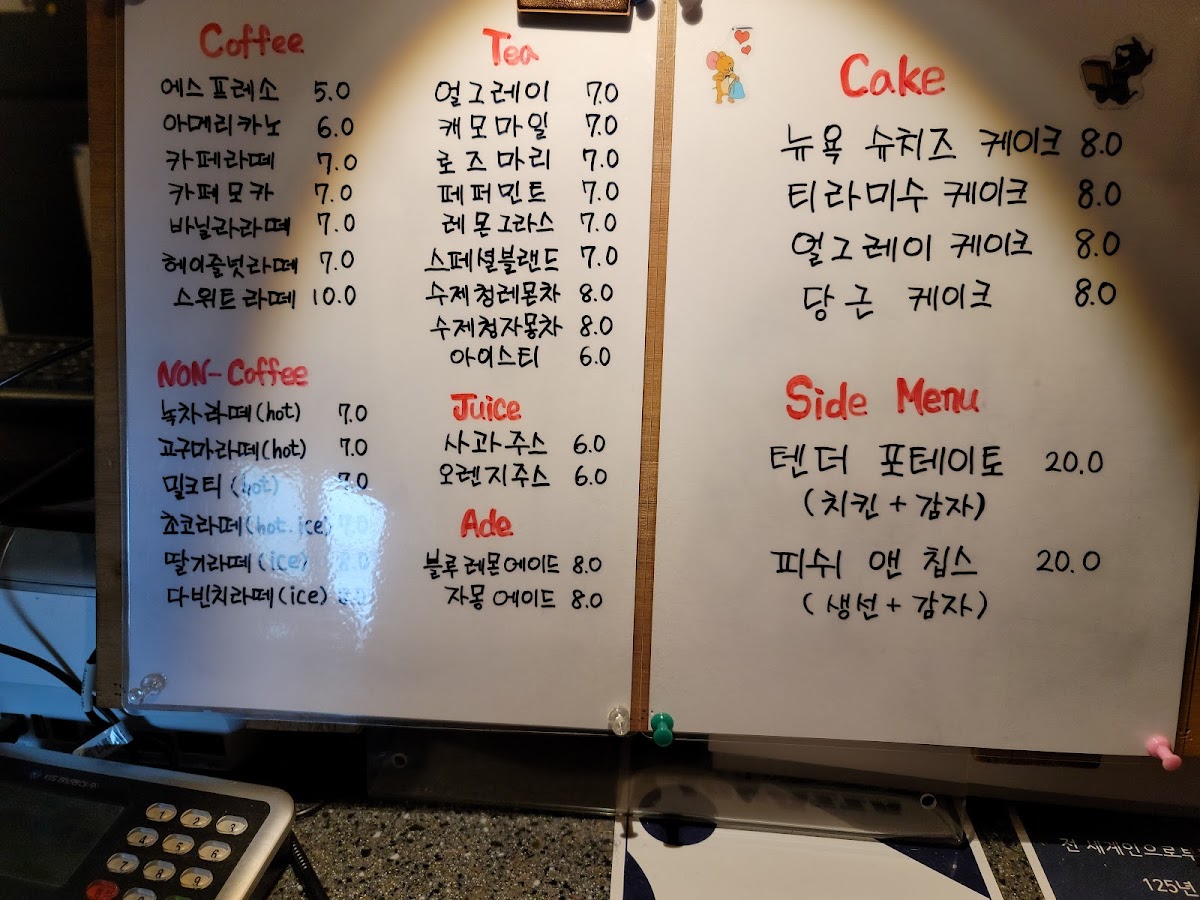 Coffee
에스프레소 5.0
아메리카노 6.0
카페라떼 7.0
카페모카 7.0
바닐라라떼 7.0
헤이즐넛라떼 7.0
스위트라떼 10.0
NON-Coffee
녹차라떼(hot) 7.0
고구마라떼(hot) 7.0
밀크티(hot) 7.0
초코라떼(hot.ice) 7.0
딸기라떼(ice) 8.0
다빈치라떼(ice)
Tea
얼그레이 7.0
캐모마일 7.0
로즈마리 7.0
페퍼민트 7.0
레몬그라스 7.0
스페셜블랜드 7.0
수제청레몬차 8.0
수제청자몽차 8.0
아이스티 6.0
Juice
사과주스 6.0
오렌지주스 6.0
Ade
블루레몬에이드 8.0
자몽에이드 8.0
Cake
뉴욕 슈치즈 케이크 8.0
티라미수 케이크 8.0
얼그레이 케이크 8.0
당근 케이크 8.0
Side Menu
텐더 포테이토 20.0
(치킨+감자)
피쉬 앤 칩스 20.0
(생선+감자)
1 2 3
4 5 6
7 8 9
전 세계인으로부
125년